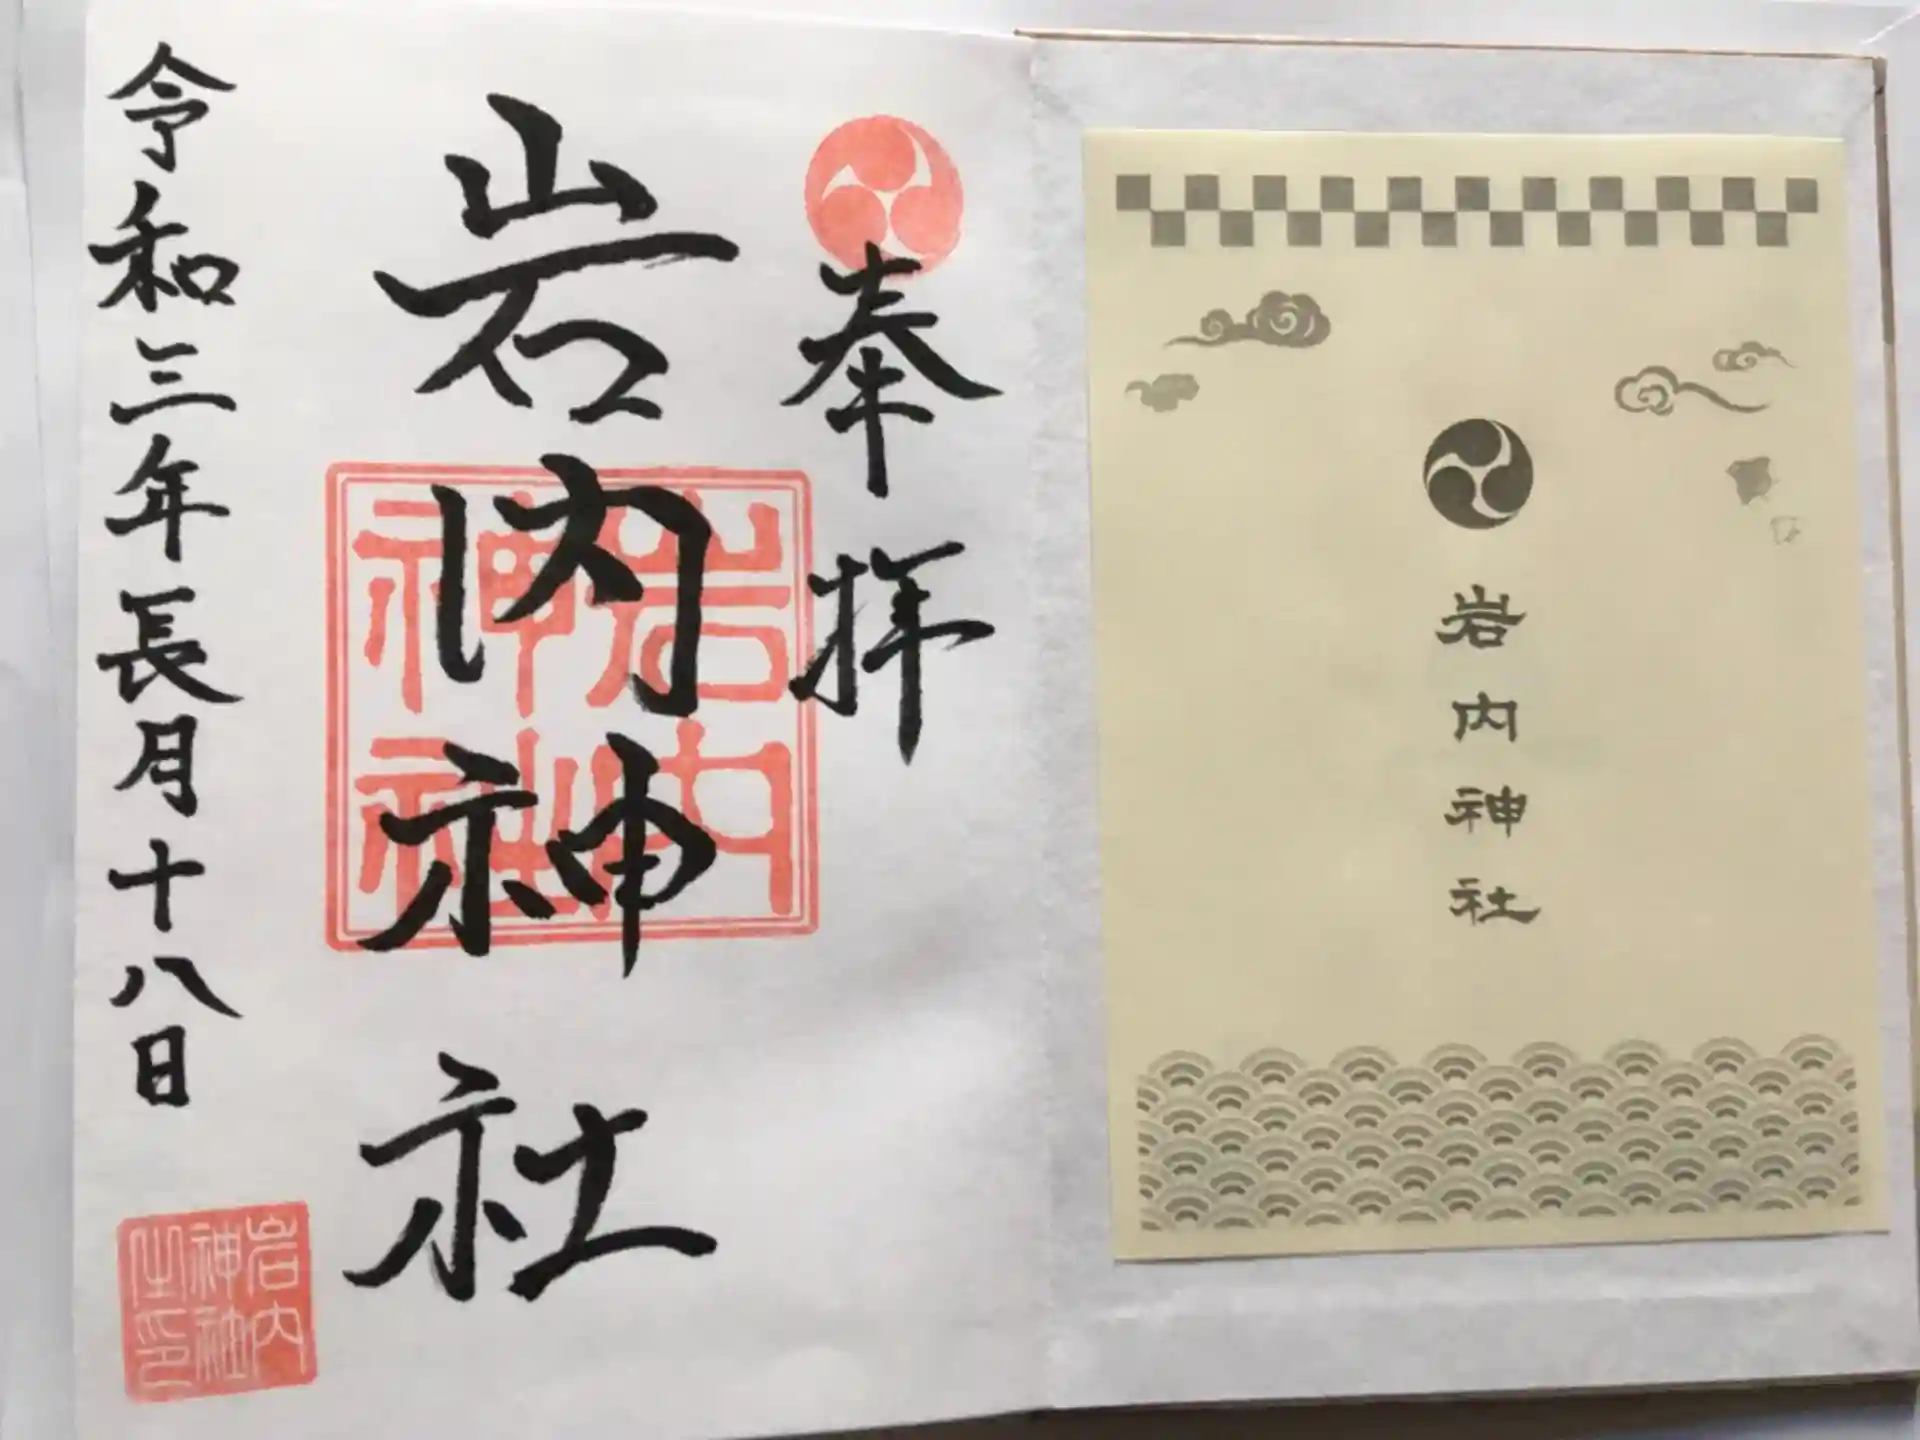 岩内神社
奉拝
岩内神社
岩内神社
令和三年長月十八日
岩内神社之印